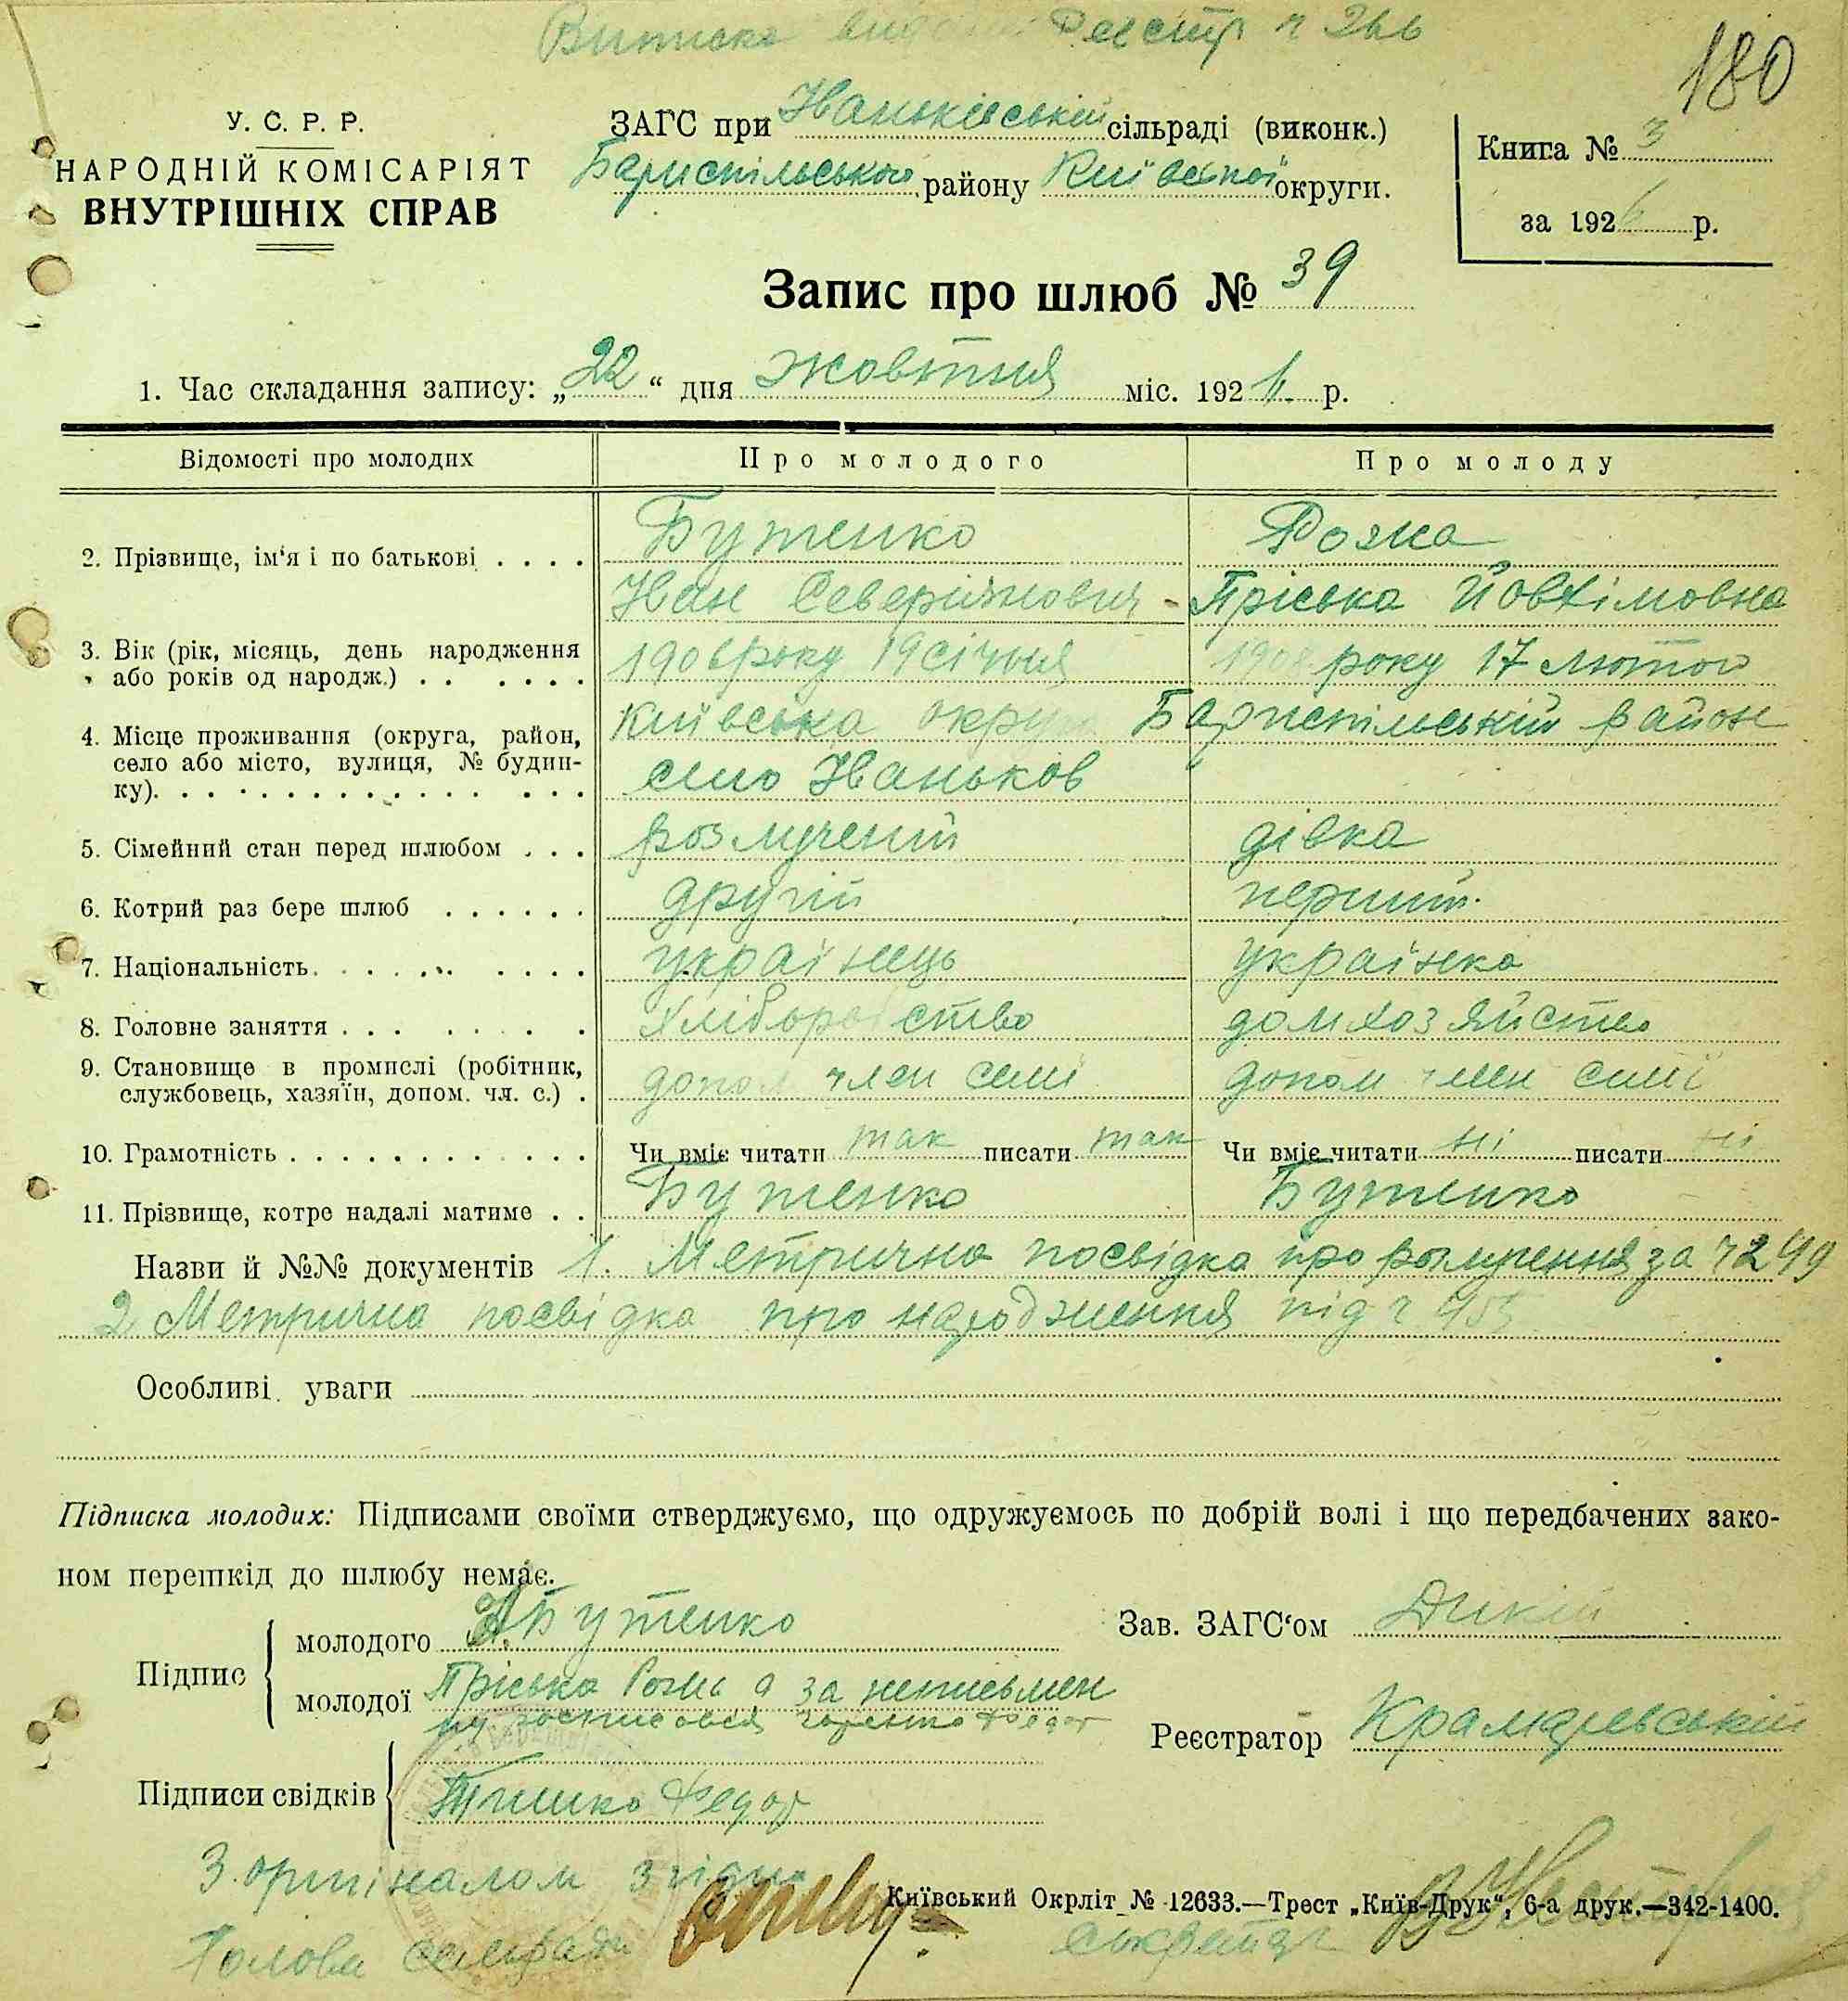 Виписка видана Реєстр ч 266
180
У. С. Р. Р.
НАРОДНІЙ КОМІСАРІЯТ
ВНУТРІШНІХ СПРАВ
ЗАГС при Іваньківській сільраді (виконк.)
Бориспільського району Київської округи.
Книга № 3
за 1926 р.
Запис про шлюб № 39
1. Час складання запису: „22“ дня жовтня міс. 1926 р.
Відомості про молодих Про молодого Про молоду
2. Прізвище, ім'я і по батькові Бутенко Рожка
Іван Северинович - Пріська Йовхімовна
3. Вік (рік, місяць, день народження або років од народж.) 1906 року 19 січня 1908 року 17 лютого
4. Місце проживання (округа, район, село або місто, вулиця, № будинку). Київська округа Бориспільський район
село Іваньков "
5. Сімейний стан перед шлюбом розлучений дівка
6. Котрий раз бере шлюб другій перший.
7. Національність українець українка
8. Головне заняття хліборобство домхозяйство
9. Становище в промислі (робітник, службовець, хазяїн, допом. чл. с.) допом член семі допом член симї
10. Грамотність Чи вміє читати так писати так Чи вміє читати ні писати ні
11. Прізвище, котре надалі матиме Бутенко Бутенко
Назви й №№ документів 1. Метрична посвідка про розлучення за ч 2499
2 Метрична посвідка про народження під ч 455
Особливі уваги
Підписка молодих: Підписами своїми стверджуємо, що одружуємось по добрій волі і що передбачених зако-
ном перешкід до шлюбу немає.
Підпис
молодого І. Бутенко
молодої Пріська Рожка а за неписьмен
ну росписовся Федот
Зав. ЗАГС'ом Дикій
Реєстратор
Підписи свідків
Федот
З оригіналом згідно
Голова сельради
Київський Окрліт № 12633.—Трест „Київ-Друк“, 6-а друк.—342-1400.
Секретар